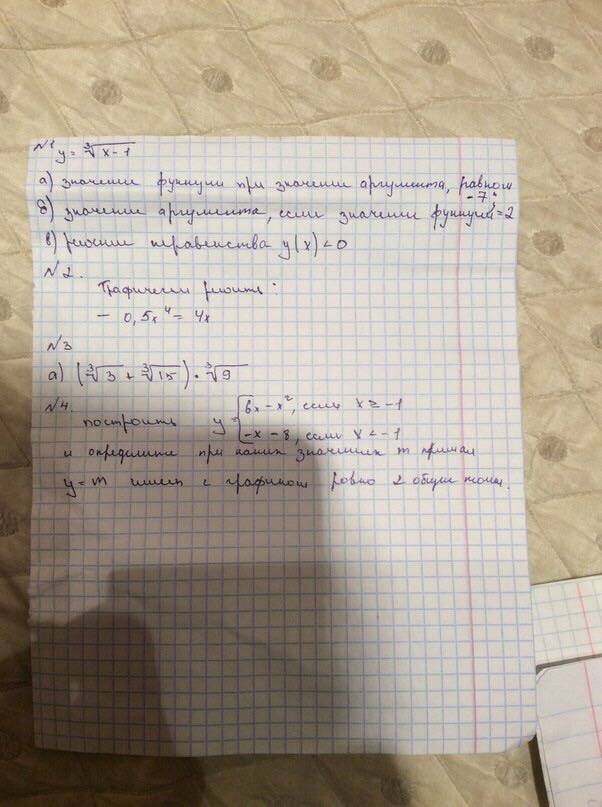 №1 y = ∛(x-1)
а) значение функции при значение аргумента, равном
-7;
б) значение аргумента, если значение функции = 2
в) решение неравенства y(x) < 0
№2.
Графически решить:
- 0,5x⁴ = 4x
№3
а) (∛3 + ∛15) · ∛9
№4.
построить y { 6x - x², если x ≥ -1
-x - 8, если x < -1
и определите при каких значениях m прямая
y = m имеет с графиком ровно 2 общие точки.